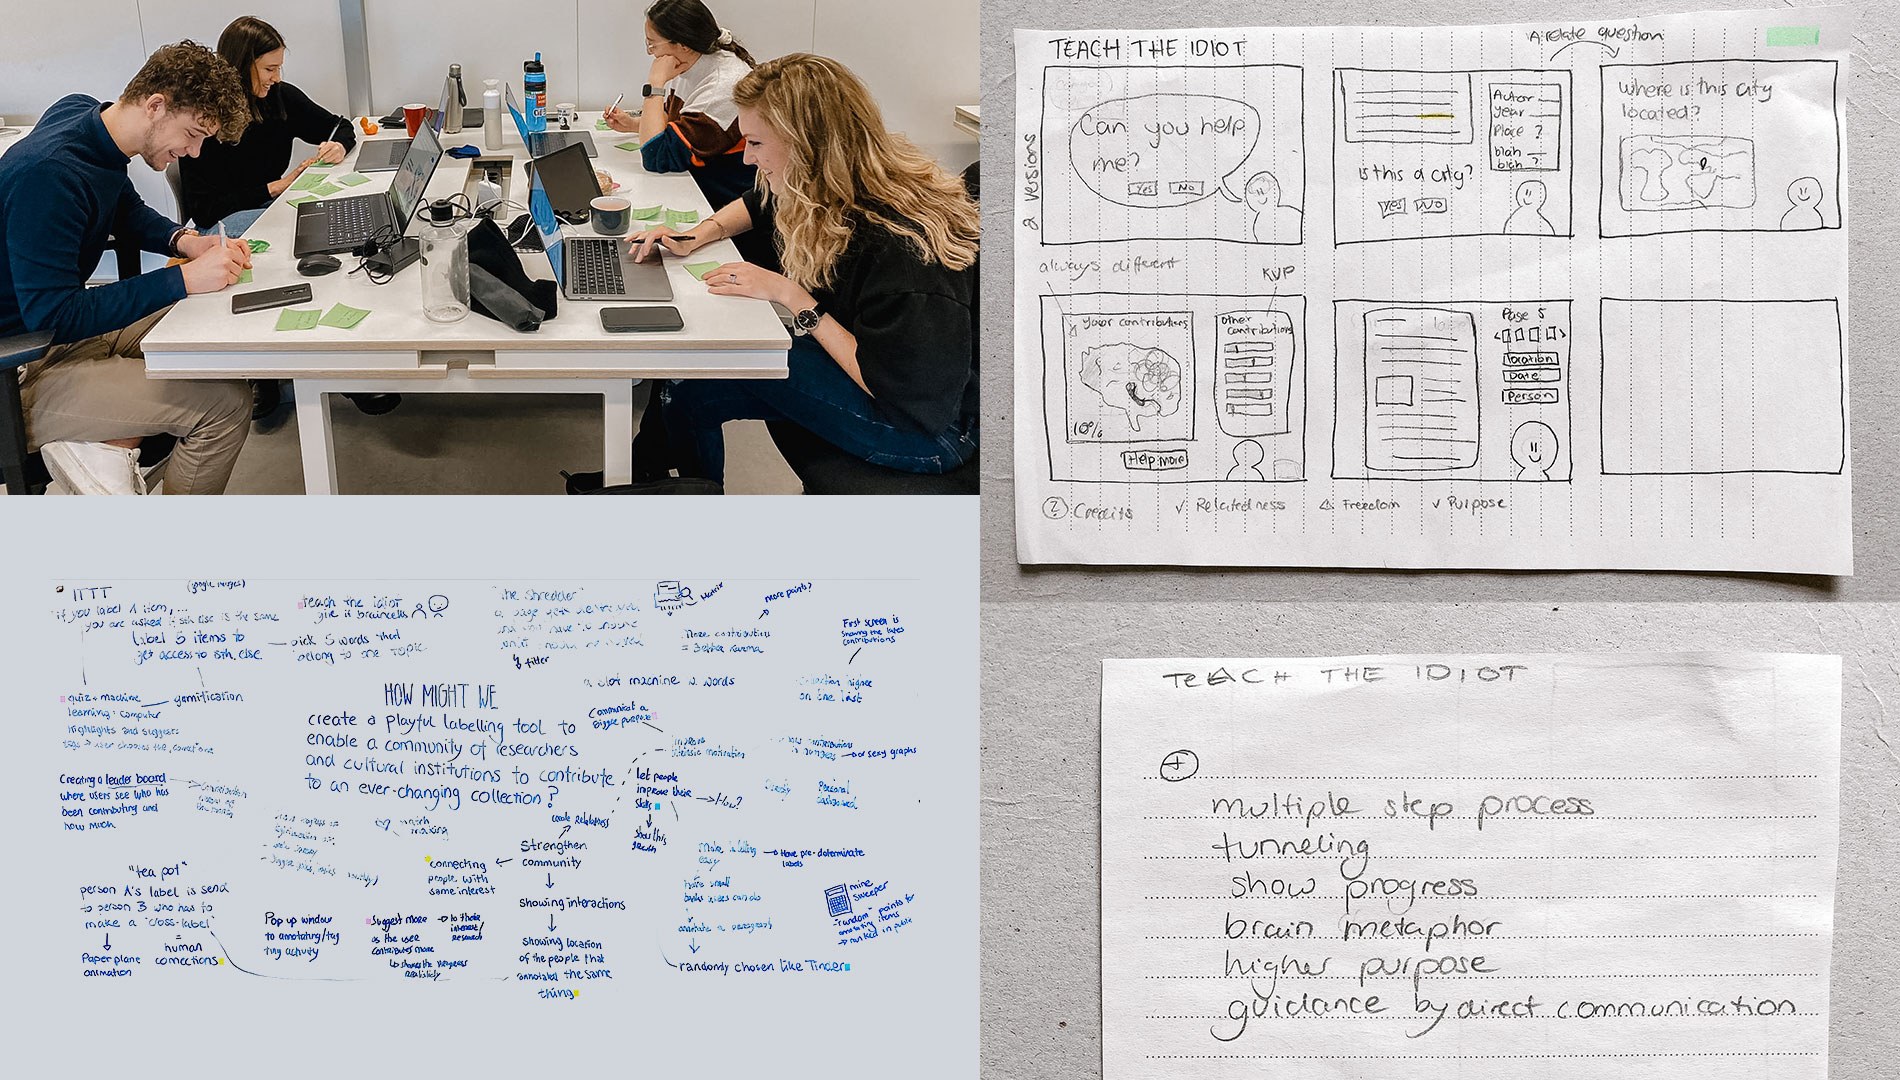 TEACH THE IDIOT
A relate question
2 versions
Can you help
me?
Yes No
Autor
year
Place ?
blah
blah ?
is this a city?
Yes NO
Where is this city
located?
always different
KVP
your contributions
10%
Other
contributions
Help more
Page 5
location
Date
Person
Credits
Relatedness
Freedom
Purpose
ITTT
(google images)
if you label 1 item,...
you are asked if sth else is the same
label 5 items to
get access to sth. else
teach the idiot
give it braincells
pick 5 words that
belong to one topic
"the shredder"
filter
Matrix
more points?
More contribution
= better karma
First screen is
showing the lates
contributions
a slot machine w. words
quiz + machine
learning: computer
highlights and suggest
gamification
HOW MIGHT WE
create a playful labelling tool to
enable a community of researchers
and cultural institutions to contribute
to an ever-changing collection?
Communicat a
Bigger purpose
improve
intrinsic motivation
or sexy graphs
Creating a leader board
where users see who has
been contributing and
how much
let people
improve their
skills
How?
show this
growth
Personal
dashboard
match
making
create relatedness
Strengthen
community
connecting
people with
same interest
showing interactions
showing location
of the people that
annotated the same
thing
make labelling
easy
Have pre-determinate
labels
annotate a paragraph
randomly chosen like Tinder
mine
sweeper
"random" points for
annotating items
"tea pot"
person A's label is send
to person B who has to
make a "cross-label"
Paper plane
animation
= human
connections
Pop up window
to annotating/tag
ting activity
Suggest more
as the user
contributes more
to their
interest/
research
TEACH THE IDIOT
+
multiple step process
tunneling
show progress
brain metaphor
higher purpose
guidance by direct communication